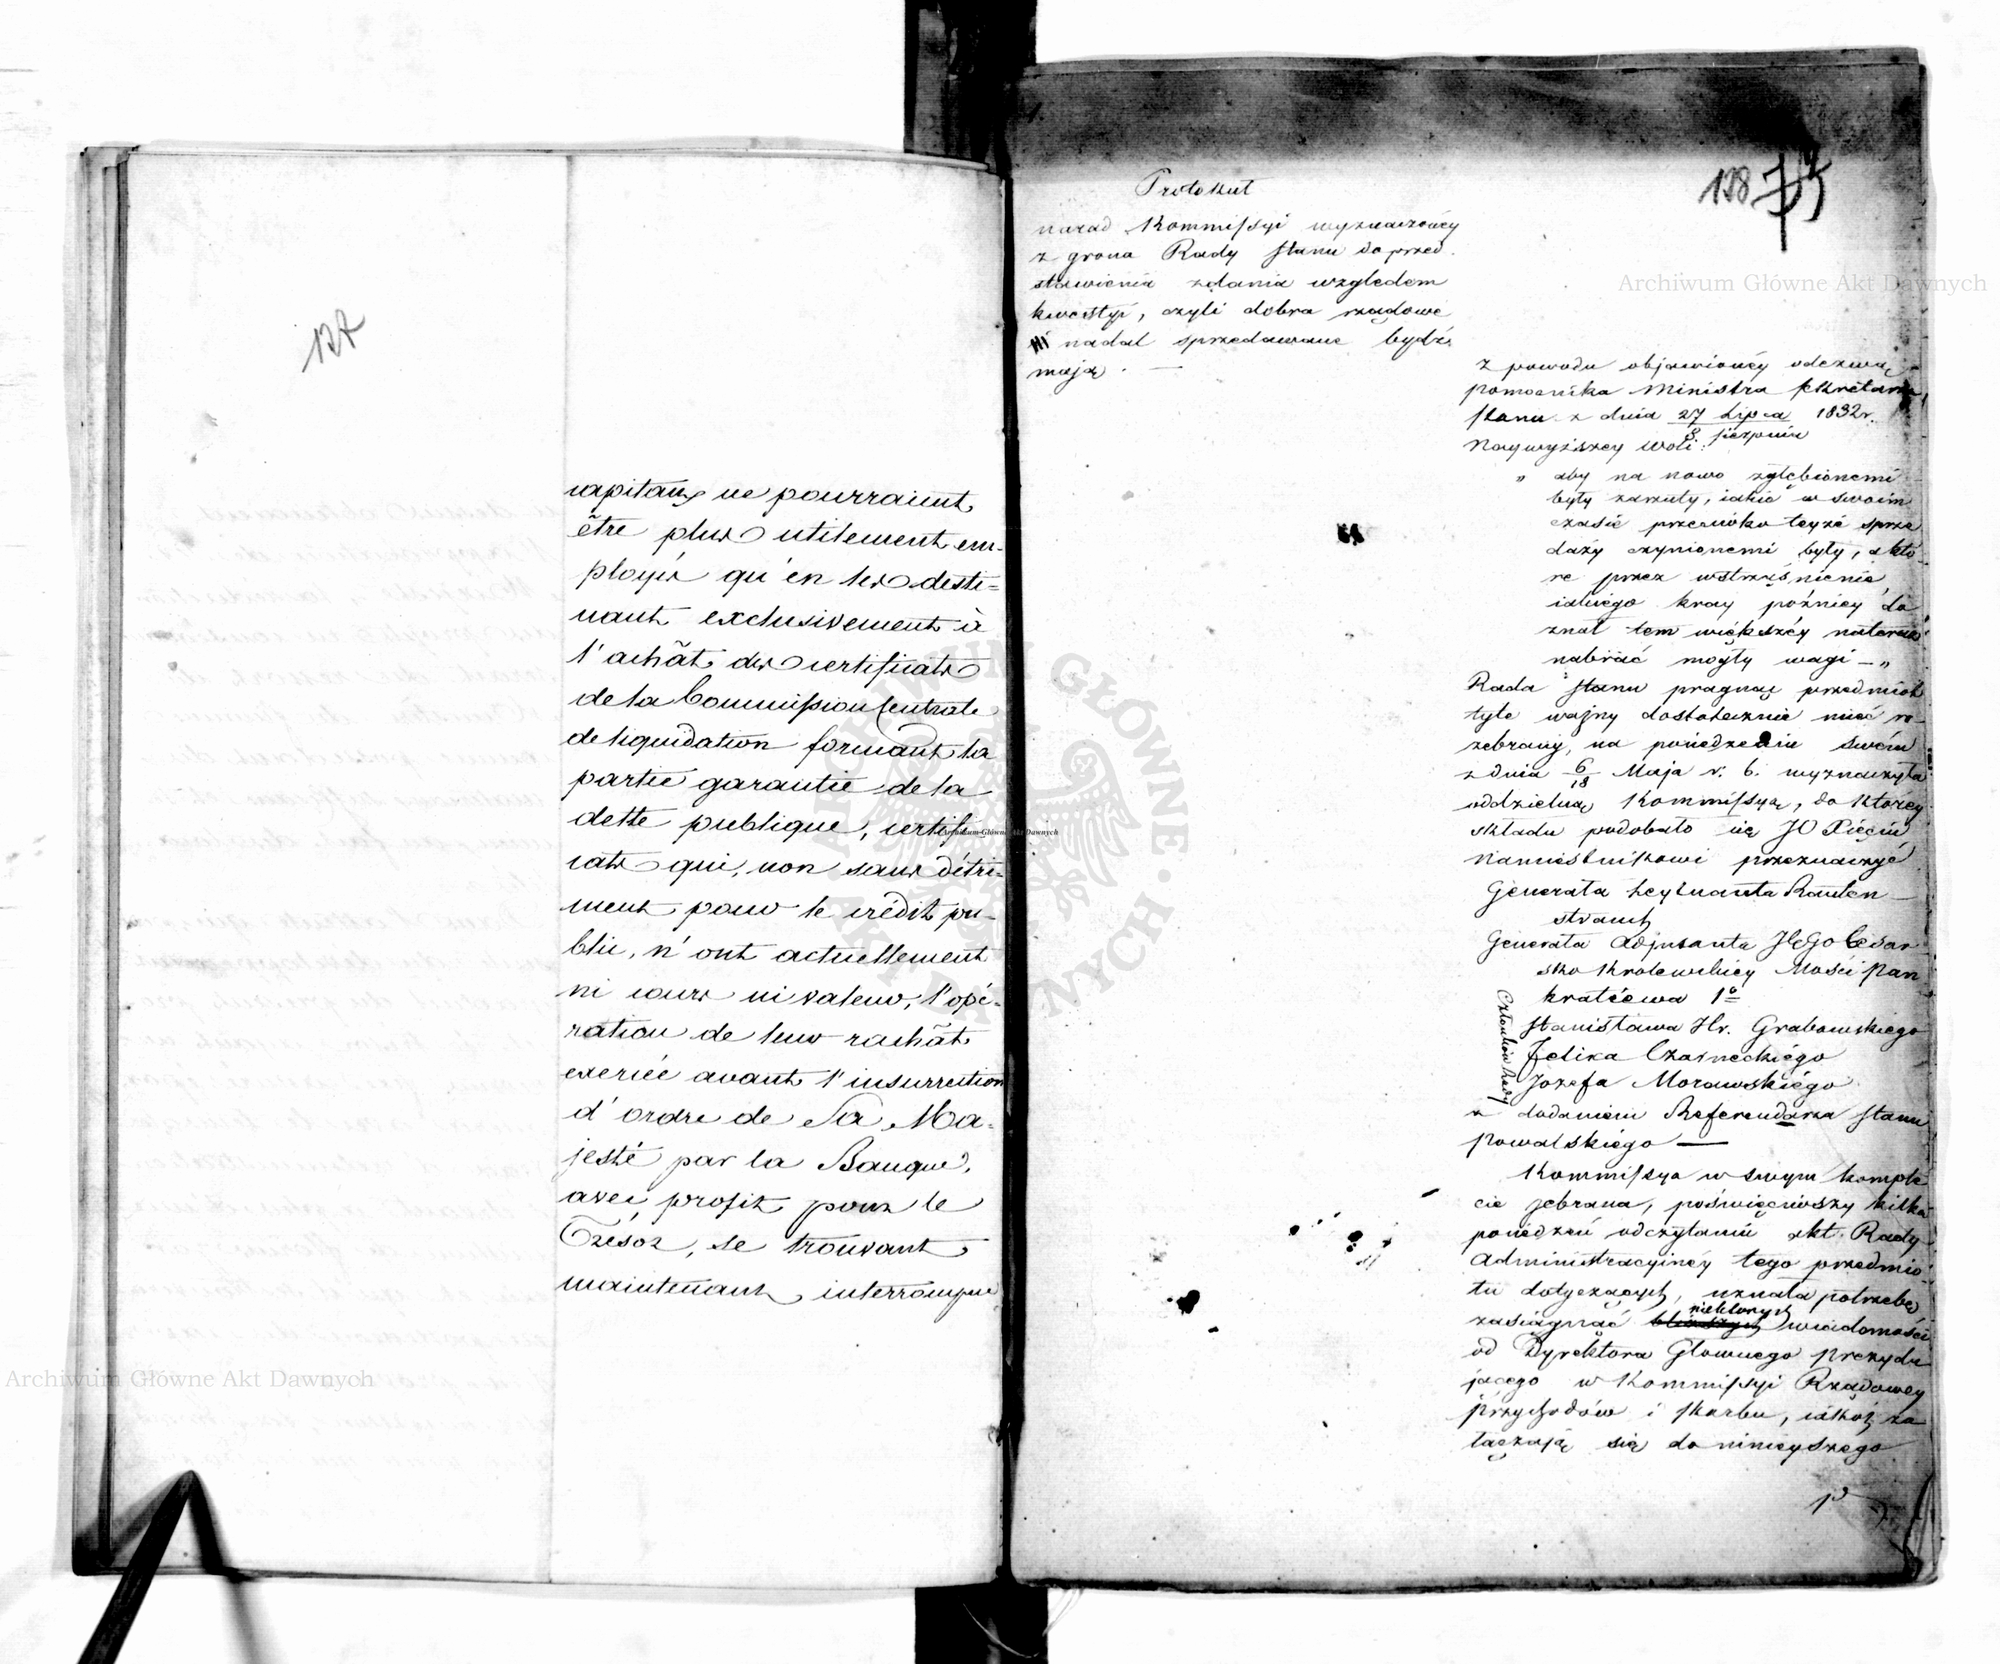 127
capitaux ne pourraient
être plus utilement em-
ployés qu'en les desti=
nant exclusivement à
l'achât des certificats
de la Commission Centrale
de liquidation formant la
partie garantie de la
dette publique, certifi
cats qui, non sans détri-
ment pour le crédit pu-
blic, n'ont actuellement
ni cours ni valeur, l'opé-
ration de leur rachât
exercée avant l'insurrection
d'ordre de Sa Ma-
jesté par la Banque,
avec profit pour le
Trésor, se trouvant
maintenant interrompue
138
Protokuł
narad Kommissyi wyznaczonéy
z grona Rady Stanu do przed.
stawienia zdania względem
kwestyi, czyli dobra rządowe
nadal sprzedawane bydź
mają. —
z powodu objawionéy odezwą
pomocnika Ministra Sekretarza
Stanu z dnia 27 Lipca 1832 r.
8 Sierpnia
Naywyższey woli:
„ aby na nowo zgłębionemi
były zarzuty, iakie w swoim
czasie przeciwko teyże sprze
daży czynionemi były, a któ
re przez wstrząśnienie
iakiego kray poźniey do
znał tem większéy naterczas
nabrać mogły wagi — „
Rada Stanu pragnąc przedmiot
tyle ważny dostatecznie mieć ro-
zebrany, na posiedzeniu swém
z dnia 6/18 Maja r. b. wyznaczyła
oddzielną Kommissyą, do którey
składu podobało się JO Xięciu
Namiestnikowi przeznaczyć
Generała Leytnanta Rauten
strauch
Generała Adjutanta JEGO Cesar
sko Królewskiey Mości Pan
kratiewa 1º
Członków Rady
Stanisława Hr. Grabowskiego
Felixa Czarneckiégo
Jozefa Morawskiégo
z dodaniem Referendarza Stanu
Powalskiégo —
Kommissya w swym komple
cie zebrana, poświęciwszy kilka
posiedzeń odczytaniu akt Rady
Administracyinéy tego przedmio
tu dotyczących, uznała potrzebę
zasiągnąć bliższych niektorych wiadomości
od Dyrektora Głownego Prezydu
jącego w Kommissyi Rządowey
Przychodów i Skarbu, iakóż za
łączają się do ninieyszego